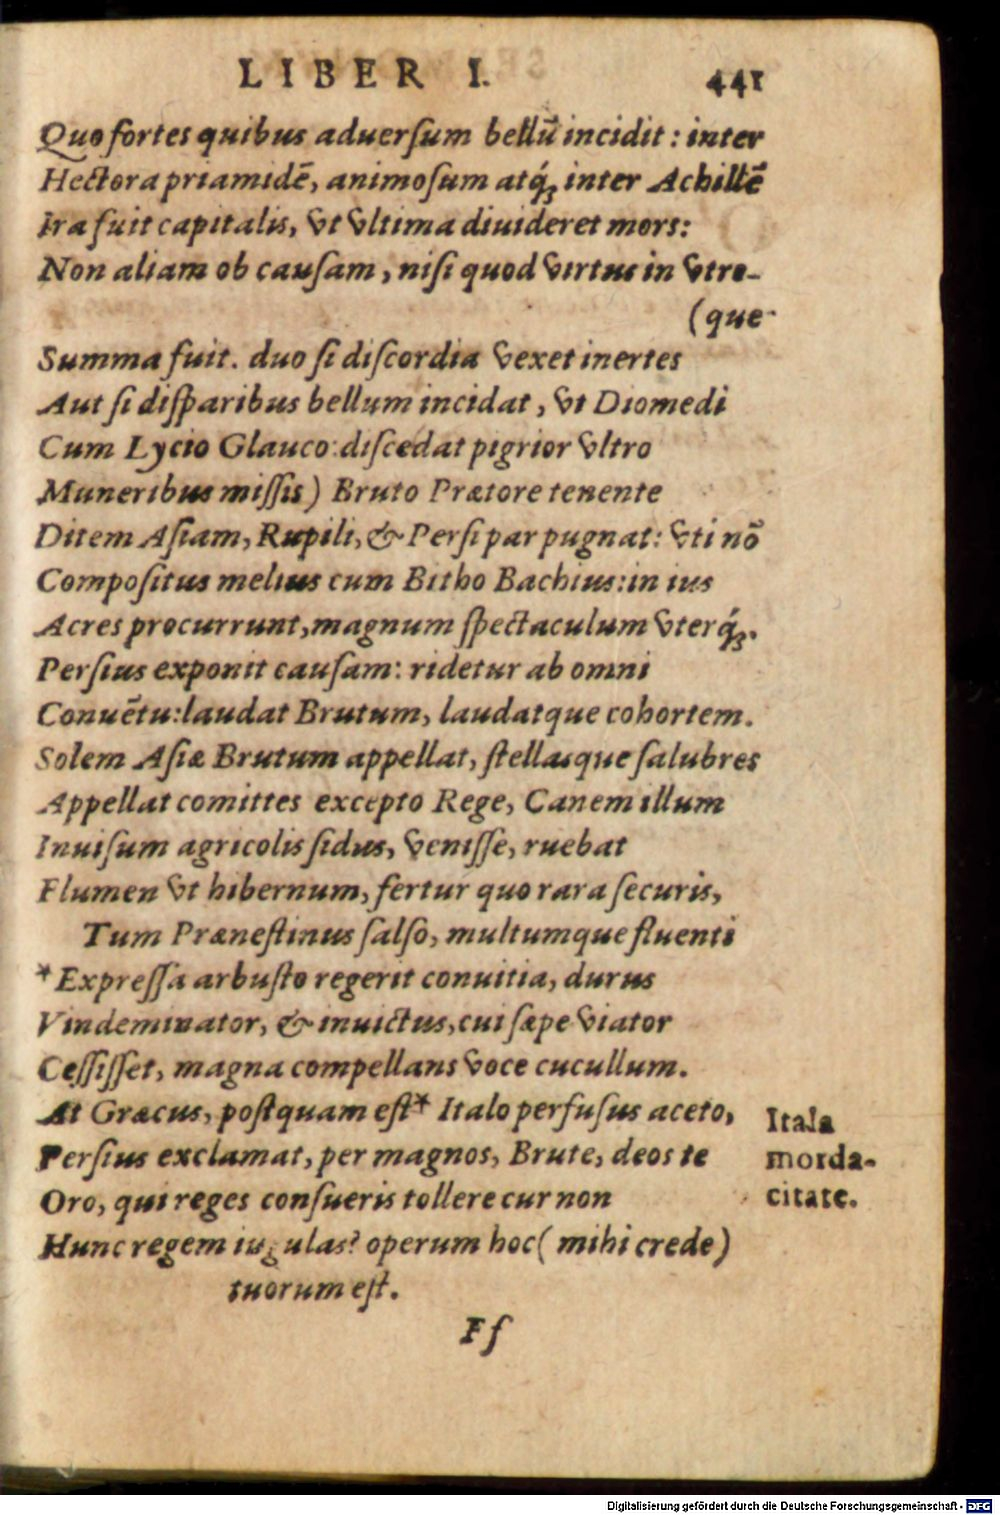 LIBER I. 441
Quo fortes quibus aduerſum bellū incidit : inter
Hectora priamidē, animoſum atq́ꝫ inter Achillē
Ira fuit capitalis, vt vltima diuideret mors:
Non aliam ob cauſam, niſi quod virtus in vtro-
(que
Summa fuit. duo ſi diſcordia vexet inertes
Aut ſi diſparibus bellum incidat, vt Diomedi
Cum Lycio Glauco: diſcedat pigrior vltro
Muneribus miſſis) Bruto Prætore tenente
Ditem Aſiam, Rupili, & Perſi par pugnat: vti nō
Compoſitus melius cum Bitho Bachius: in ius
Acres procurrunt, magnum ſpectaculum vterq́ꝫ.
Perſius exponit cauſam: ridetur ab omni
Conuētu: laudat Brutum, laudatque cohortem.
Solem Aſiæ Brutum appellat, ſtellasque ſalubres
Appellat comittes excepto Rege, Canem illum
Inuiſum agricolis ſidus, veniſſe, ruebat
Flumen vt hibernum, fertur quo rara ſecuris,
Tum Præneſtinus ſalſo, multumque fluenti
*Expreſſa arbuſto regerit conuitia, durus
Vindeminator, & inuictus, cui ſæpe viator
Ceſſiſſet, magna compellans voce cucullum.
At Græcus, poſtquam eſt* Italo perfuſus aceto,
Perſius exclamat, per magnos, Brute, deos te
Oro, qui reges conſueris tollere cur non
Hunc regem iugulas? operum hoc (mihi crede)
tuorum eſt.
Itala
morda-
citate.
Ff
Digitalisierung gefördert durch die Deutsche Forschungsgemeinschaft - DFG